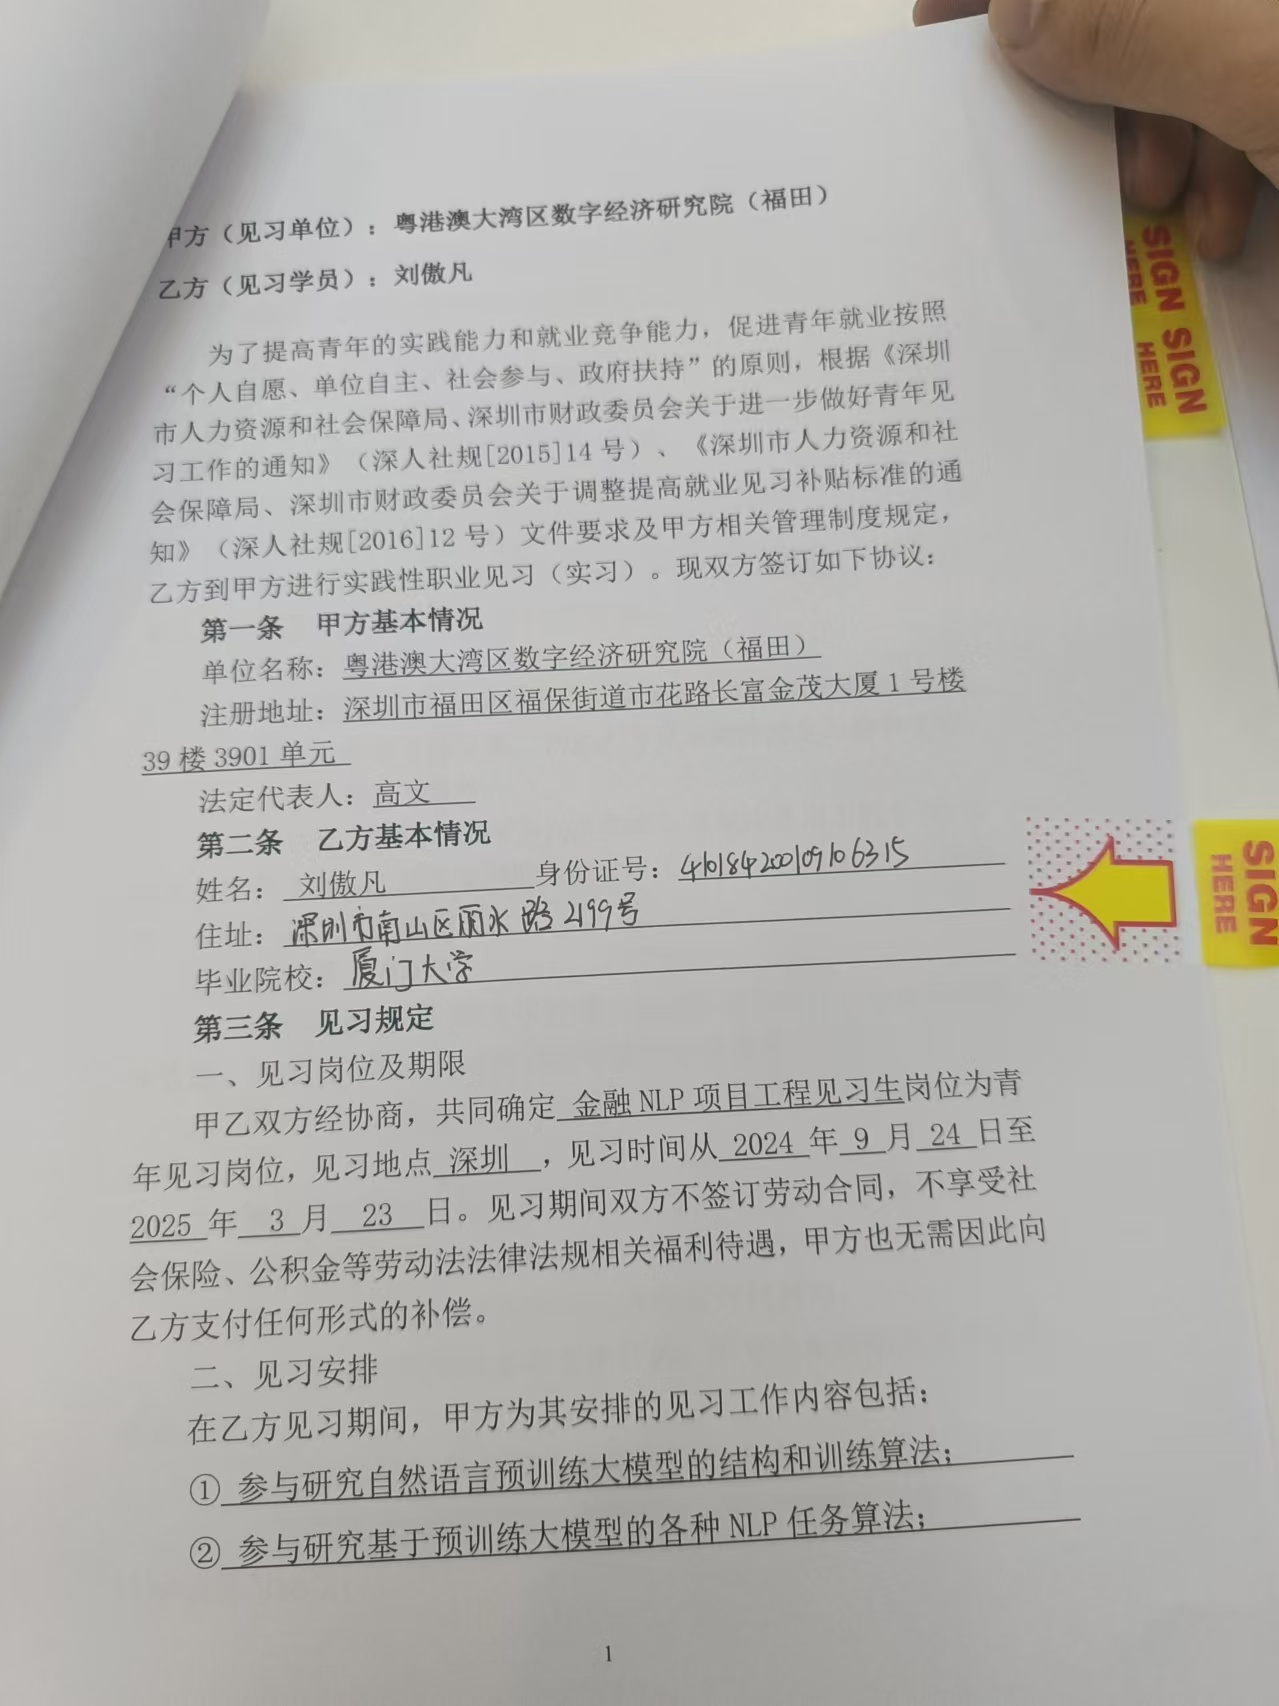 甲方（见习单位）：粤港澳大湾区数字经济研究院（福田）
乙方（见习学员）：刘傲凡
为了提高青年的实践能力和就业竞争能力，促进青年就业按照
“个人自愿、单位自主、社会参与、政府扶持”的原则，根据《深圳
市人力资源和社会保障局、深圳市财政委员会关于进一步做好青年见
习工作的通知》（深人社规[2015]14号）、《深圳市人力资源和社
会保障局、深圳市财政委员会关于调整提高就业见习补贴标准的通
知》（深人社规[2016]12号）文件要求及甲方相关管理制度规定，
乙方到甲方进行实践性职业见习（实习）。现双方签订如下协议：
第一条 甲方基本情况
单位名称：粤港澳大湾区数字经济研究院（福田）
注册地址：深圳市福田区福保街道市花路长富金茂大厦1号楼
39楼3901单元
法定代表人：高文
第二条 乙方基本情况
姓名：刘傲凡 身份证号：410184200109106315
住址：深圳市南山区丽水路2199号
毕业院校：厦门大学
第三条 见习规定
一、见习岗位及期限
甲乙双方经协商，共同确定 金融NLP项目工程见习生岗位为青
年见习岗位，见习地点 深圳 ，见习时间从 2024 年 9 月 24 日至
2025 年 3 月 23 日。见习期间双方不签订劳动合同，不享受社
会保险、公积金等劳动法法律法规相关福利待遇，甲方也无需因此向
乙方支付任何形式的补偿。
二、见习安排
在乙方见习期间，甲方为其安排的见习工作内容包括：
① 参与研究自然语言预训练大模型的结构和训练算法；
② 参与研究基于预训练大模型的各种NLP任务算法；
1
SIGN HERE
SIGN HERE
SIGN HERE